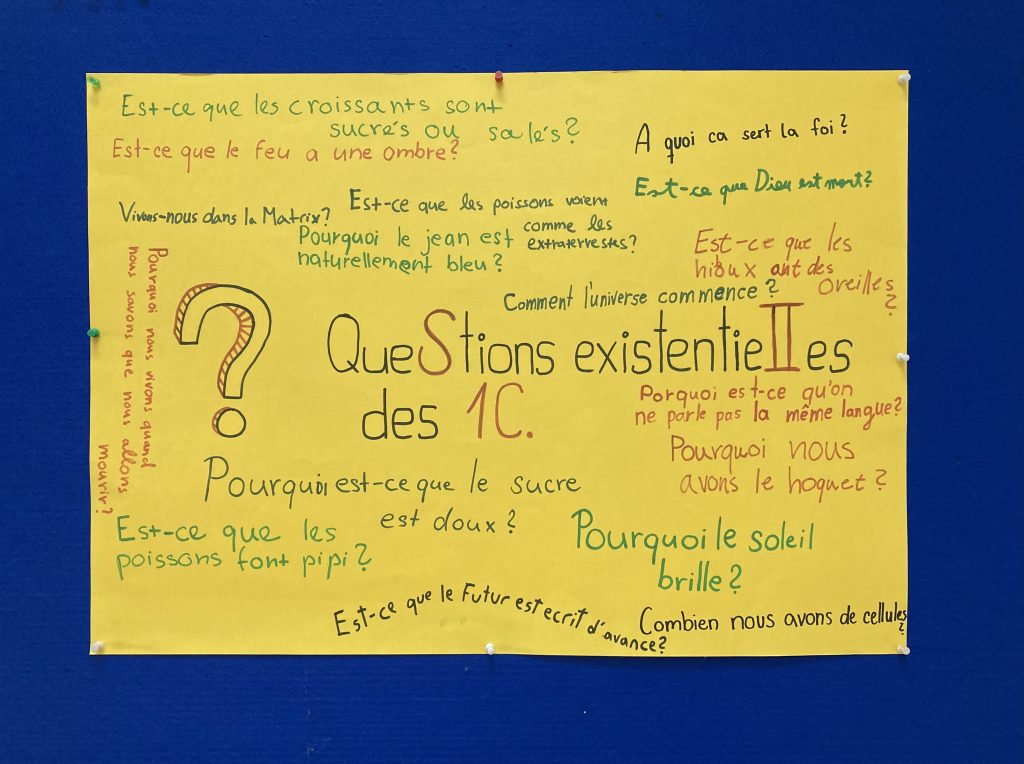 Est-ce que les croissants sont
sucrés ou salés?
Est-ce que le feu a une ombre?
A quoi ca sert la foi?
Est-ce que Dieu est mort?
Vivons-nous dans la Matrix?
Est-ce que les poissons voient
comme les
extraterrestes?
Pourquoi le jean est
naturellement bleu?
Est-ce que les
hiboux ont des
oreilles
?
Comment l'universe commence?
Pourquoi nous vivons quand
nous savons que nous allons
mourir?
?
QueStions existentieIIes
des 1C.
Porquoi est-ce qu'on
ne parle pas la même langue?
Pourquoi nous
avons le hoquet?
Pourquoi est-ce que le sucre
est doux?
Est-ce que les
poissons font pipi?
Pourquoi le soleil
brille?
Est-ce que le Futur est ecrit d'avance?
Combien nous avons de cellules
?